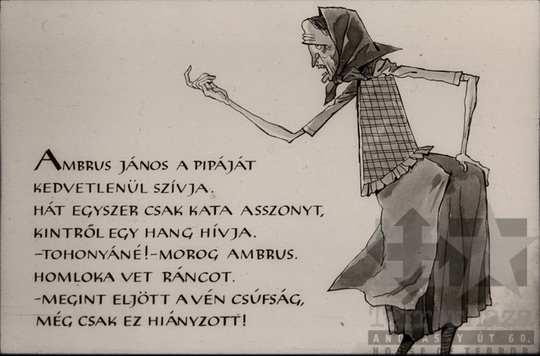 AMBRUS JÁNOS A PIPÁJÁT
KEDVETLENÜL SZÍVJA.
HÁT EGYSZER CSAK KATA ASSZONYT,
KINTRŐL EGY HANG HÍVJA.
-TOHONYÁNÉ!-MOROG AMBRUS.
HOMLOKA VET RÁNCOT.
-MEGINT ELJÖTT A VÉN CSÚFSÁG,
MÉG CSAK EZ HIÁNYZOTT!
ANDRÁSSY ÚT 60.
HOUSE OF TERROR